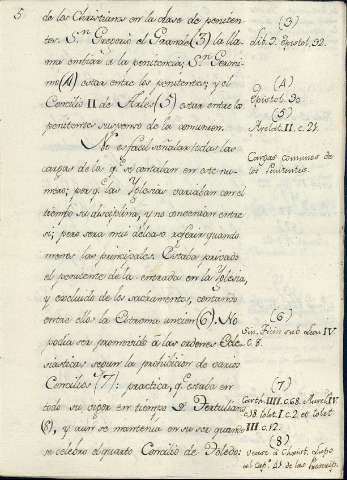 5
de los Christianos en la clase de peniten-
tes. Sn. Gregorio el Grande (3) la lla-
ma embiar a la penitencia; Sn. Geroni-
mo (4) estar entre los penitentes; y el
Concilio II de Arles (5) estar entre los
penitentes suspenso de la comunion.
No es facil señalar todas las
cargas de los q.e se contaban en este nu-
mero; por q.e las Yglesias variaban con el
tiempo su disciplina, y no convenian entre
si; pero sera mui del caso referir quando
menos las principales. Estaba privado
el penitente de la entrada en la Yglesia,
y excluido de los sacramentos, contando
entre ellos la Extrema uncion (6). No
podia ser promovido a las ordenes Ecle-
siasticas segun la prohibicion de varios
Concilios (7): practica, q.e estaba en
todo su vigor en tiempo de Tertuliano
(8), y aun se mantenia en su ser quando
se celebro el quarto Concilio de Toledo:
(3)
Lib. 2. Epistol. 32.
(4)
Epistol. 30
(5)
Arelat. II. c. 21.
Cargas comunes de
los Penitentes
(6)
Sub Leon IV
c. 8.
(7)
Carth. IIII. c. 68.
c. 18 tolet. I. c. 2 et tolet
III c. 12.
(8)
vease
al Cap.